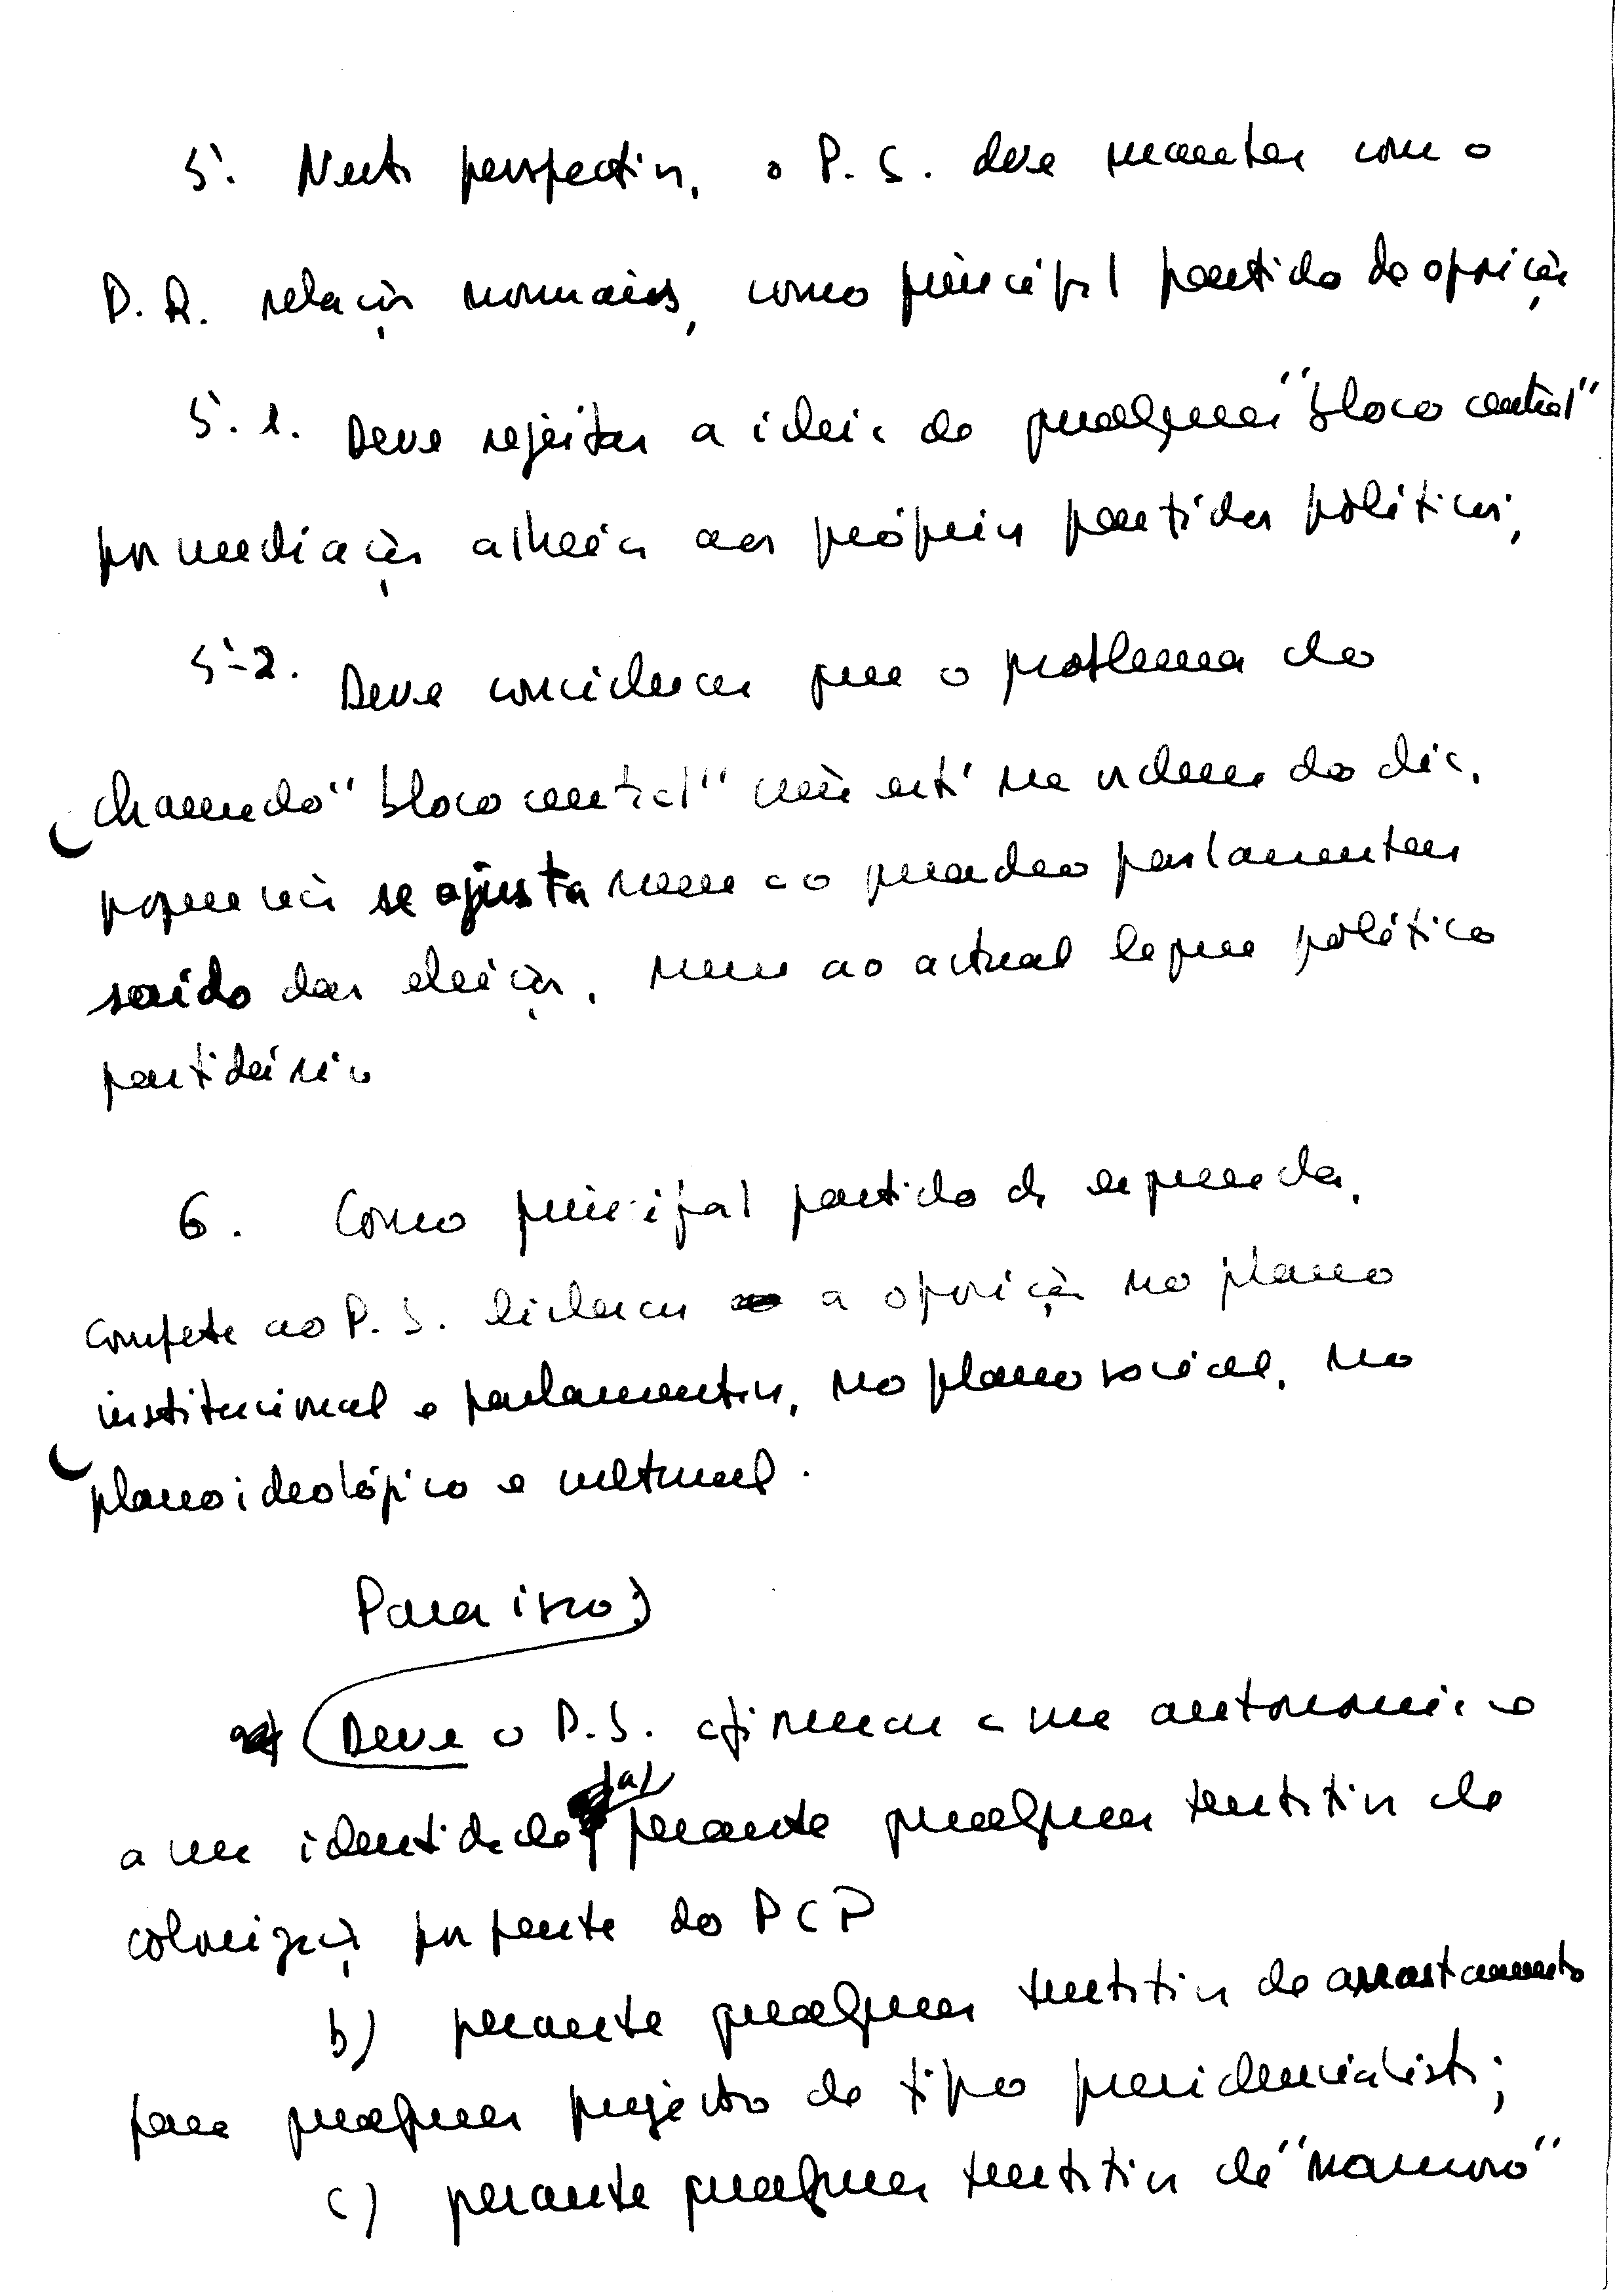 5. Nesta perspectiva, o P. S. deve manter com o
P. R. relações normais, como principal partido da oposição
5.1. Deve rejeitar a ideia de qualquer "bloco central"
por mediação alheia aos próprios partidos políticos;
5-2. Deve considerar que o problema do
chamado "bloco central" não está na ordem do dia,
porque não se ajusta nem ao quadro parlamentar
saído das eleições, nem ao actual leque político
partidário
6. Como principal partido da esquerda,
compete ao P. S. liderar a oposição no plano
institucional e parlamentar, no plano social, no
plano ideológico e cultural.
Para isso:
Deve o P. S. afirmar a sua autonomia e
a sua identidade: a) perante qualquer tentativa de
colonização por parte do PCP
b) perante qualquer tentativa de arrastamento
para qualquer projecto de tipo presidencialista;
c) perante qualquer tentativa de "namoro"